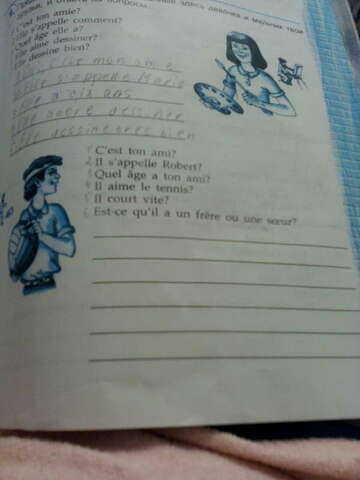 здесь девочка и мальчик твои
друзья, и ответь на вопросы.
C'est ton amie?
Elle s'appelle comment?
Quel âge elle a?
Elle aime dessiner?
Elle dessine bien?
mon amie
s'appelle Marie
a dix ans
dessiner
dessine très bien
1 C'est ton ami?
2 Il s'appelle Robert?
3 Quel âge a ton ami?
4 Il aime le tennis?
5 Il court vite?
6 Est-ce qu'il a un frère ou une sœur?